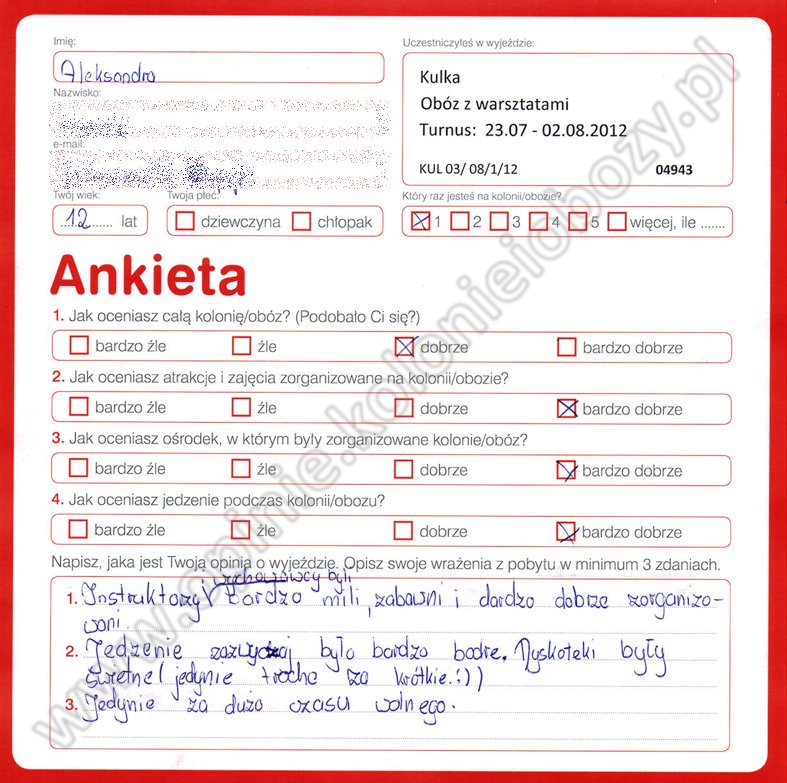 Imię:
Aleksandra
Nazwisko:
e-mail:
Twój wiek:
12 lat
Twoja płeć:
dziewczyna chłopak
Uczestniczyłeś w wyjeździe:
Kulka
Obóz z warsztatami
Turnus: 23.07 - 02.08.2012
KUL 03/ 08/1/12 04943
Który raz jesteś na kolonii/obozie?
1 2 3 4 5 więcej, ile .......
Ankieta
1. Jak oceniasz całą kolonię/obóz? (Podobało Ci się?)
bardzo źle źle dobrze bardzo dobrze
2. Jak oceniasz atrakcje i zajęcia zorganizowane na kolonii/obozie?
bardzo źle źle dobrze bardzo dobrze
3. Jak oceniasz ośrodek, w którym były zorganizowane kolonie/obóz?
bardzo źle źle dobrze bardzo dobrze
4. Jak oceniasz jedzenie podczas kolonii/obozu?
bardzo źle źle dobrze bardzo dobrze
Napisz, jaka jest Twoją opinią o wyjeździe. Opisz swoje wrażenia z pobytu w minimum 3 zdaniach.
wychowawcy byli
1. Instruktorzy bardzo mili, zabawni i dardzo dobrze zorganizo-
wani.
2. Jedzenie zazwyczaj było bardzo bodre. Dyskoteki były
świetne (jedynie troche za krótkie :))
3. Jedynie za dużo czasu wolnego.
www.opinie.kolonieiobozy.pl